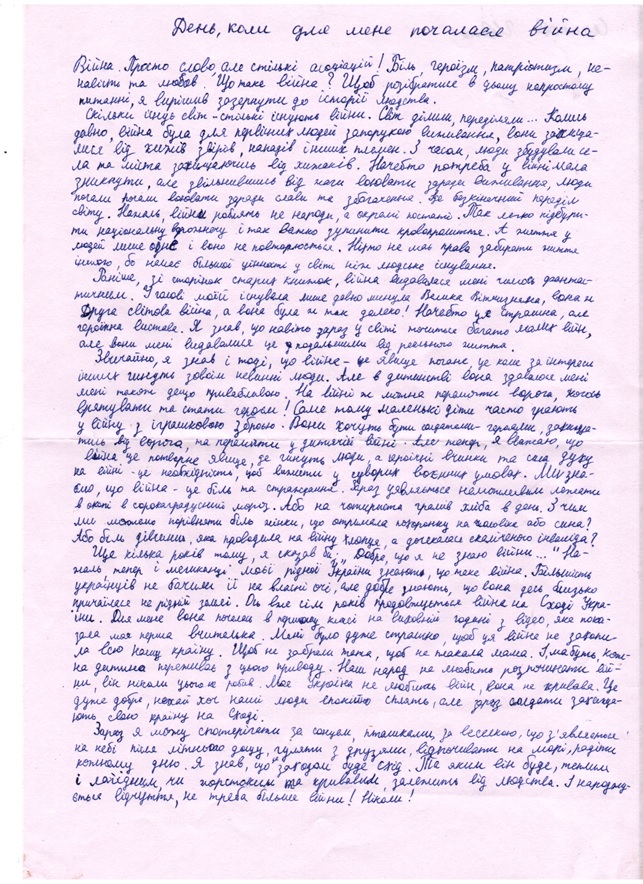 День, коли для мене почалася війна
Війна. Просто слово, але стільки асоціацій! Біль, героїзм, патріотизм, не-
нависть та любов. Що таке війна? Щоб розібратися в цьому непростому
питанні, я вирішив зазернути до історії людства.
Скільки існує світ – стільки існують війни. Світ ділили, переділяли... Колись
давно, війна була для первісних людей запорукою виживання, вони захища-
лися від хижих звірів, нападів інших племен. З часом, люди збудували се-
ла та міста захищаючись від хижаків. Начебто потреба у війні мала
зникнути, але звільнившись від ваги воювати заради виживання, люди
почали почали воювати заради слави та збагачення. Це безкінечний переділ
світу. Нажаль, війни роблять не народи, а окремі постаті. Так легко підбури-
ти національну ворожнечу і так важко зупинити кровопролиття. А життя у
людей лише одне і воно не повторюється. Ніхто не має права забирати життя
іншого, бо немає більшої цінності у світі ніж людське існування.
Раніше, зі сторінок старих книжок, війна видавалася мені чимось фантас-
тичним. У голові моїй існувала лише давно минула Велика Вітчизняна, вона ж
Друга світова війна, а вона була ж так далеко! Начебто це страшна, але
героїчна вистава. Я знав, що навіть зараз у світі точиться багато малих війн,
але вони мені видавалися це подальшими від реального життя.
Звичайно, я знав і тоді, що війна – це явище погане, це коли за інтереси
інших гинуть зовсім невинні люди. Але в дитинстві вона здавалося мені
мені також дещо привабливою. На війні ж можна перемогти ворога, когось
врятувати та стати героєм! Саме тому маленькі діти часто грають
у війну з іграшковою зброєю. Вони хочуть бути солдатами-героями, захища-
тись від ворога, та перемагати у дитячій війні. Але тепер, я вважаю, що
війна це потворне явище, де гинуть люди, а героїчні вчинки та сила духу
на війні – це необхідність, щоб вижити у суворих воєнних умовах. Ми зна-
ємо, що війна – це біль та страждання. Зараз уявляється неможливим лежати
в окопі в сорокаградусний мороз. Або на чотириста грамів хліба в день. З чим
ми можемо порівняти біль жінки, що отримала похоронку на чоловіка або сина?
Або біль дівчини, яка проводила на війну хлопця, а дочекалася скаліченого інваліда?
Ще кілька років тому, я сказав би: „Добре, що я не знаю війни..." На-
жаль тепер і мешканці моєї рідної України знають, що таке війна. Більшість
українців не бачили її на власні очі, але добре знають, що вона десь близько
причаїлася на рідній землі. Ось вже сім років продовжується війна на Сході Укра-
їни. Для мене вона почалась в першому класі на виховній годині з відео, яке пока-
зала моя перша вчителька. Мені було дуже страшно, щоб ця війна не захопи-
ла всю нашу країну. Щоб не забрали тата, щоб не плакала мама. І мабуть, кож-
на дитина переживає з цього приводу. Наш народ не любить розпочинати вій-
ни, він ніколи цього не робив. Моя Україна не любить війн, вона не кривава. Це
дуже добре, нехай хоч наші люди спокійно сплять, але зараз солдати захища-
ють, свою країну на Сході.
Зараз я можу спостерігати за сонцем, пташками, за веселкою, що з'являється
на небі після літнього дощу, гуляти з друзями, відпочивати на морі, радіти
кожному дню. Я знаю, що за заходом буде схід. Та яким він буде, теплим
і лагідним, чи жорстоким та кривавим, залежить від людства. І народжу-
ється відчуття, не треба більше війни! Ніколи!